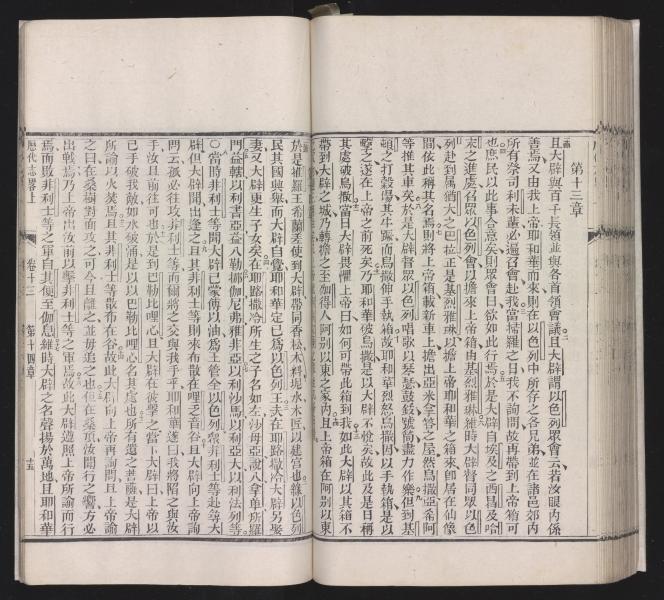 第十三章
且大辟與百千長領並與各傳首領會議且大辟謂以色列眾會云若汝眼內係
善焉又由我上帝耶和華而來則在以色列中所存之各兄弟並在諸邑郊內
所有祭司利未輩必遍召會赴我富掃羅之日我不詢問故再帶到上帝箱可
也庶民以此事合意矣則眾會曰欲如此行焉於是大辟自埃及之西曷及哈
末之進處召眾以色列會以擔來上帝箱由基烈雅琳維時大辟督同眾以色
列赴到屬猶大之巴拉正是基烈雅琳以擔上帝耶和華之箱來卽居在仙像
間依此稱其名焉則將上帝箱載新車上擔出亞米拿答之屋然烏撒亞希阿
等推其車矣於是大辟督眾以色列唱歌以琴瑟鼓鈸號筒盡力作樂但到基
頓之打穀塲其牛而烏撒伸手執箱故耶和華烈怒烏撒因以手執箱是以
擊之遂在上帝之前死矣乃耶和華破烏撒是以大辟不悅矣故此及是日稱
其處破烏撒當日大辟畏懼上帝曰如何可帶此箱到我如此大辟以其箱不
帶到大辟之城乃轉擔之至伽得人阿別以東之家內且上帝箱在阿別以東
於是推羅王希蘭差使到大辟帶同香松木料坭水木匠以建宮也緣以色列
民其國興舉而大辟自覺耶和華定已為以色列王夫在耶路撒冷大辟另娶
妻又大辟更生子女矣在耶路撒冷所生之子名如左沙毋亞說八拿單所羅
門益轄以利書亞益八勒挪伽尼弗雅非亞以利沙馬以利亞大以利法列等
○當時非利士等聞大辟已蒙傅以油為王管全以色列眾非利士等赴尋大
辟但大辟聞出逢之且其非利士等則來布散在哩乏音谷且大辟向上帝詢
問云孤必往攻非利士等而爾將之交與我手乎耶和華迺曰我將陷之與汝
手汝且前往可也於是到巴勒比哩心且大辟在彼擊之當下大辟曰上帝以
己手破我敵如水破涌是以以巴勒比哩心名其處也所有遺之菩薩是大辟
所諭以火焚焉且其非利士等散布在谷故此大辟向上帝再詢問且上帝諭
之曰在桑樹對面攻之可今且離之並毋追之也但在桑頂汝聞行之響方必
出戰焉乃上帝出汝前以擊非利士等之軍焉故此大辟遵照上帝所諭而行
焉而敗非利士等之軍自其便至伽息維時大辟之名聲揚於萬地且耶和華
歷代志畧上 卷十三 第十四章 十五